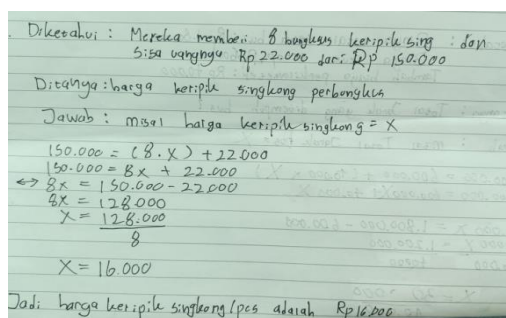 Diketahui : Mereka membeli 8 bungkus keripik sing : dan
Sisa uangnya Rp 22.000 dari Rp 150.000
Ditanya : harga keripik singkong perbungkus
Jawab : misal harga keripik singkong = X
150.000 = (8.X) + 22.000
150.000 = 8x + 22.000
↔ 8x = 150.000 - 22000
8x = 128.000
x = 128.000
8
X = 16.000
Jadi harga keripik singkong/pcs adalah Rp16.000